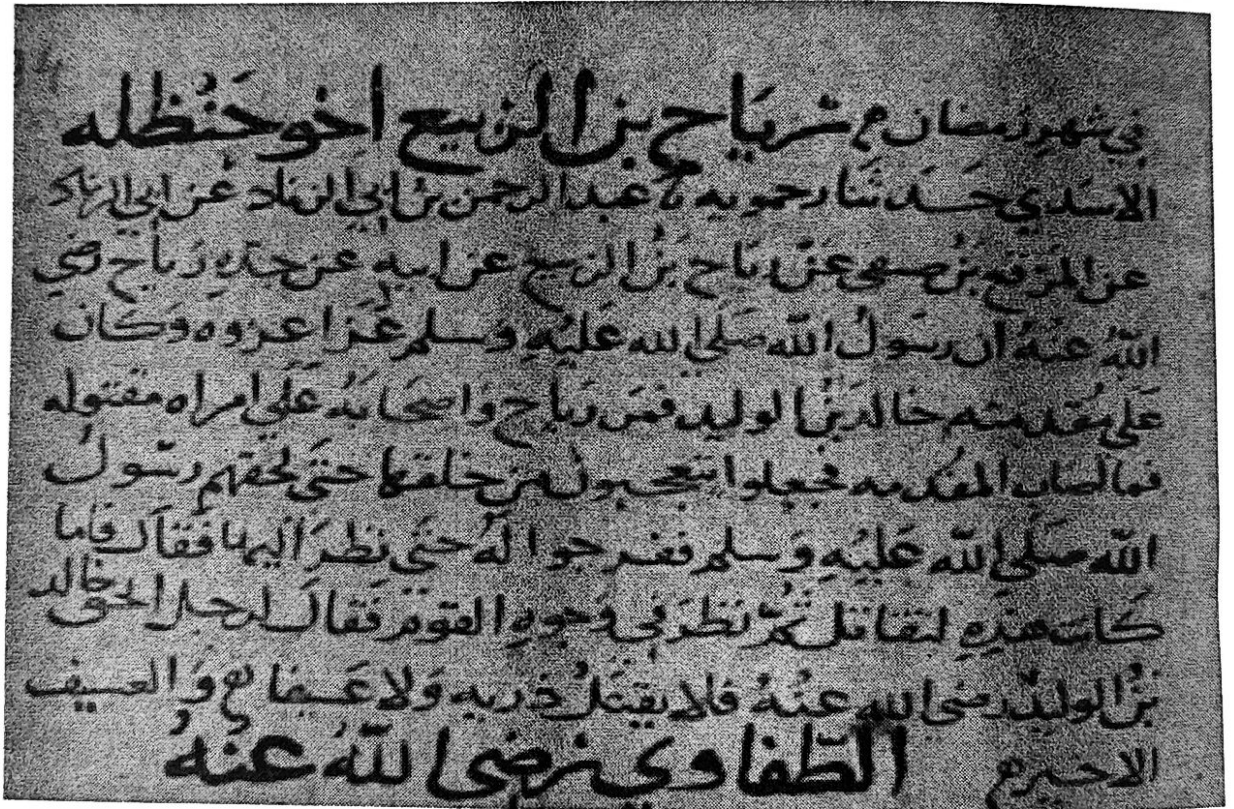 في شهر رمضان م رياح بن الربيع اخو حنظله
الاسدي حدثنا رحمويه نا عبد الرحمن بن ابي الزناد عن ابي الزناد
عن المرقع بن صيفي عن رياح بن الربيع عن ابيه عن جده رياح رضي
اللهُ عنهُ ان رسولُ الله صلي الله عليه وسلم غزا غزوه وكان
علي مقدمته خالد بن الوليد فمر رياح واصحابهُ علي امراه مقتوله
مما اصاب المقدمه فجعلوا يتعجبون من خلقها حتي لحقهم رسول
الله صلي الله عليه وسلم ففرجوا له حتي نظر اليها فقال فاما
كانت هذه لتقاتل ثم نظر في وجوه القوم فقال لرجل الحق خالد
بن الوليد رضي الله عنهُ فلا يقتلُ ذريه ولا عسيفا والعسيف
الاجير الطفاوي رضي اللهُ عنهُ